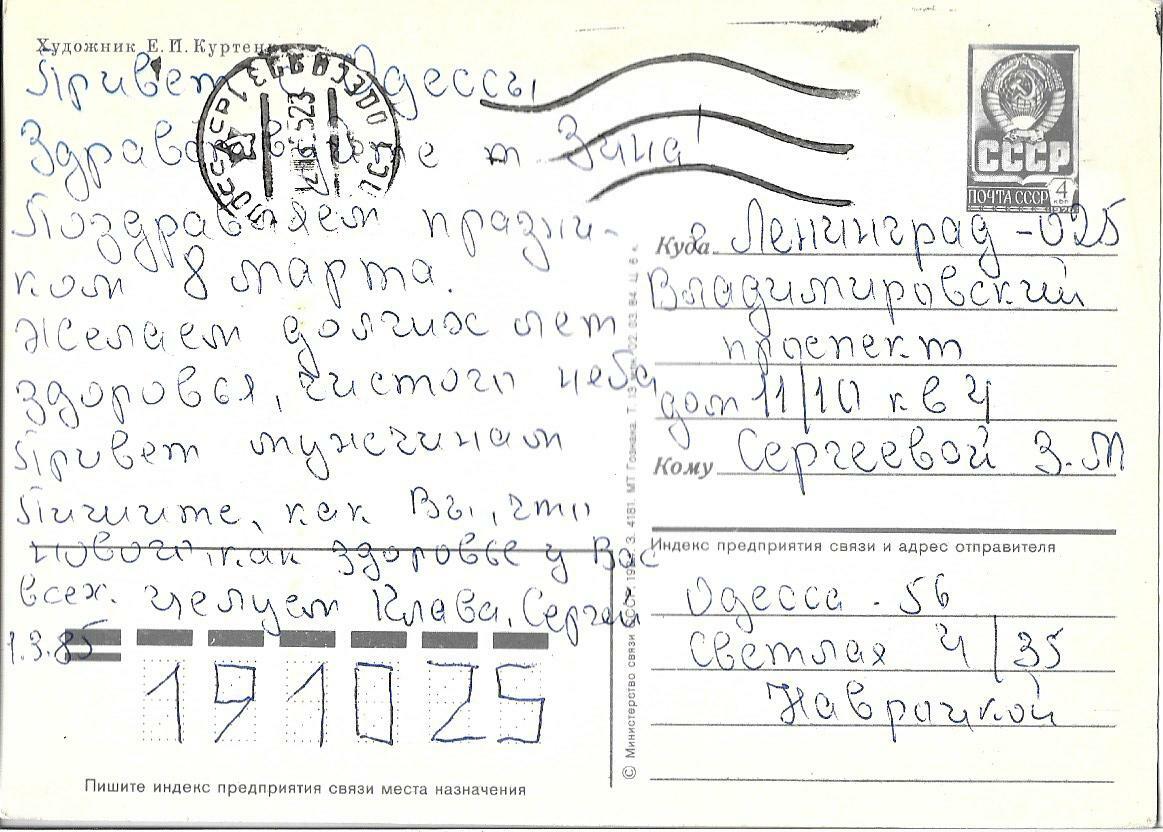 Художник Е. И. Куртен
Привет Одессы
Здравствуйте т Зина!
Поздравляем праздни-
ком 8 марта.
Желаем долгих лет
здоровья, чистого неба
Привет мужчинам
Пишите, как Вы, что
нового, как здоровье у Вас
всех. Целуем Клава, Сергей
1.3.85
191025
Пишите индекс предприятия связи места назначения
СССР
ПОЧТА СССР 4 коп
Куда Ленинград-025
Владимировский
проспект
дом 11/10 кв 4
Кому Сергеевой З.М
Индекс предприятия связи и адрес отправителя
Одесса - 56
Светлая 4/35
© Министерство связи СССР.
З. 4181. МТ Гознака.
02.03.84